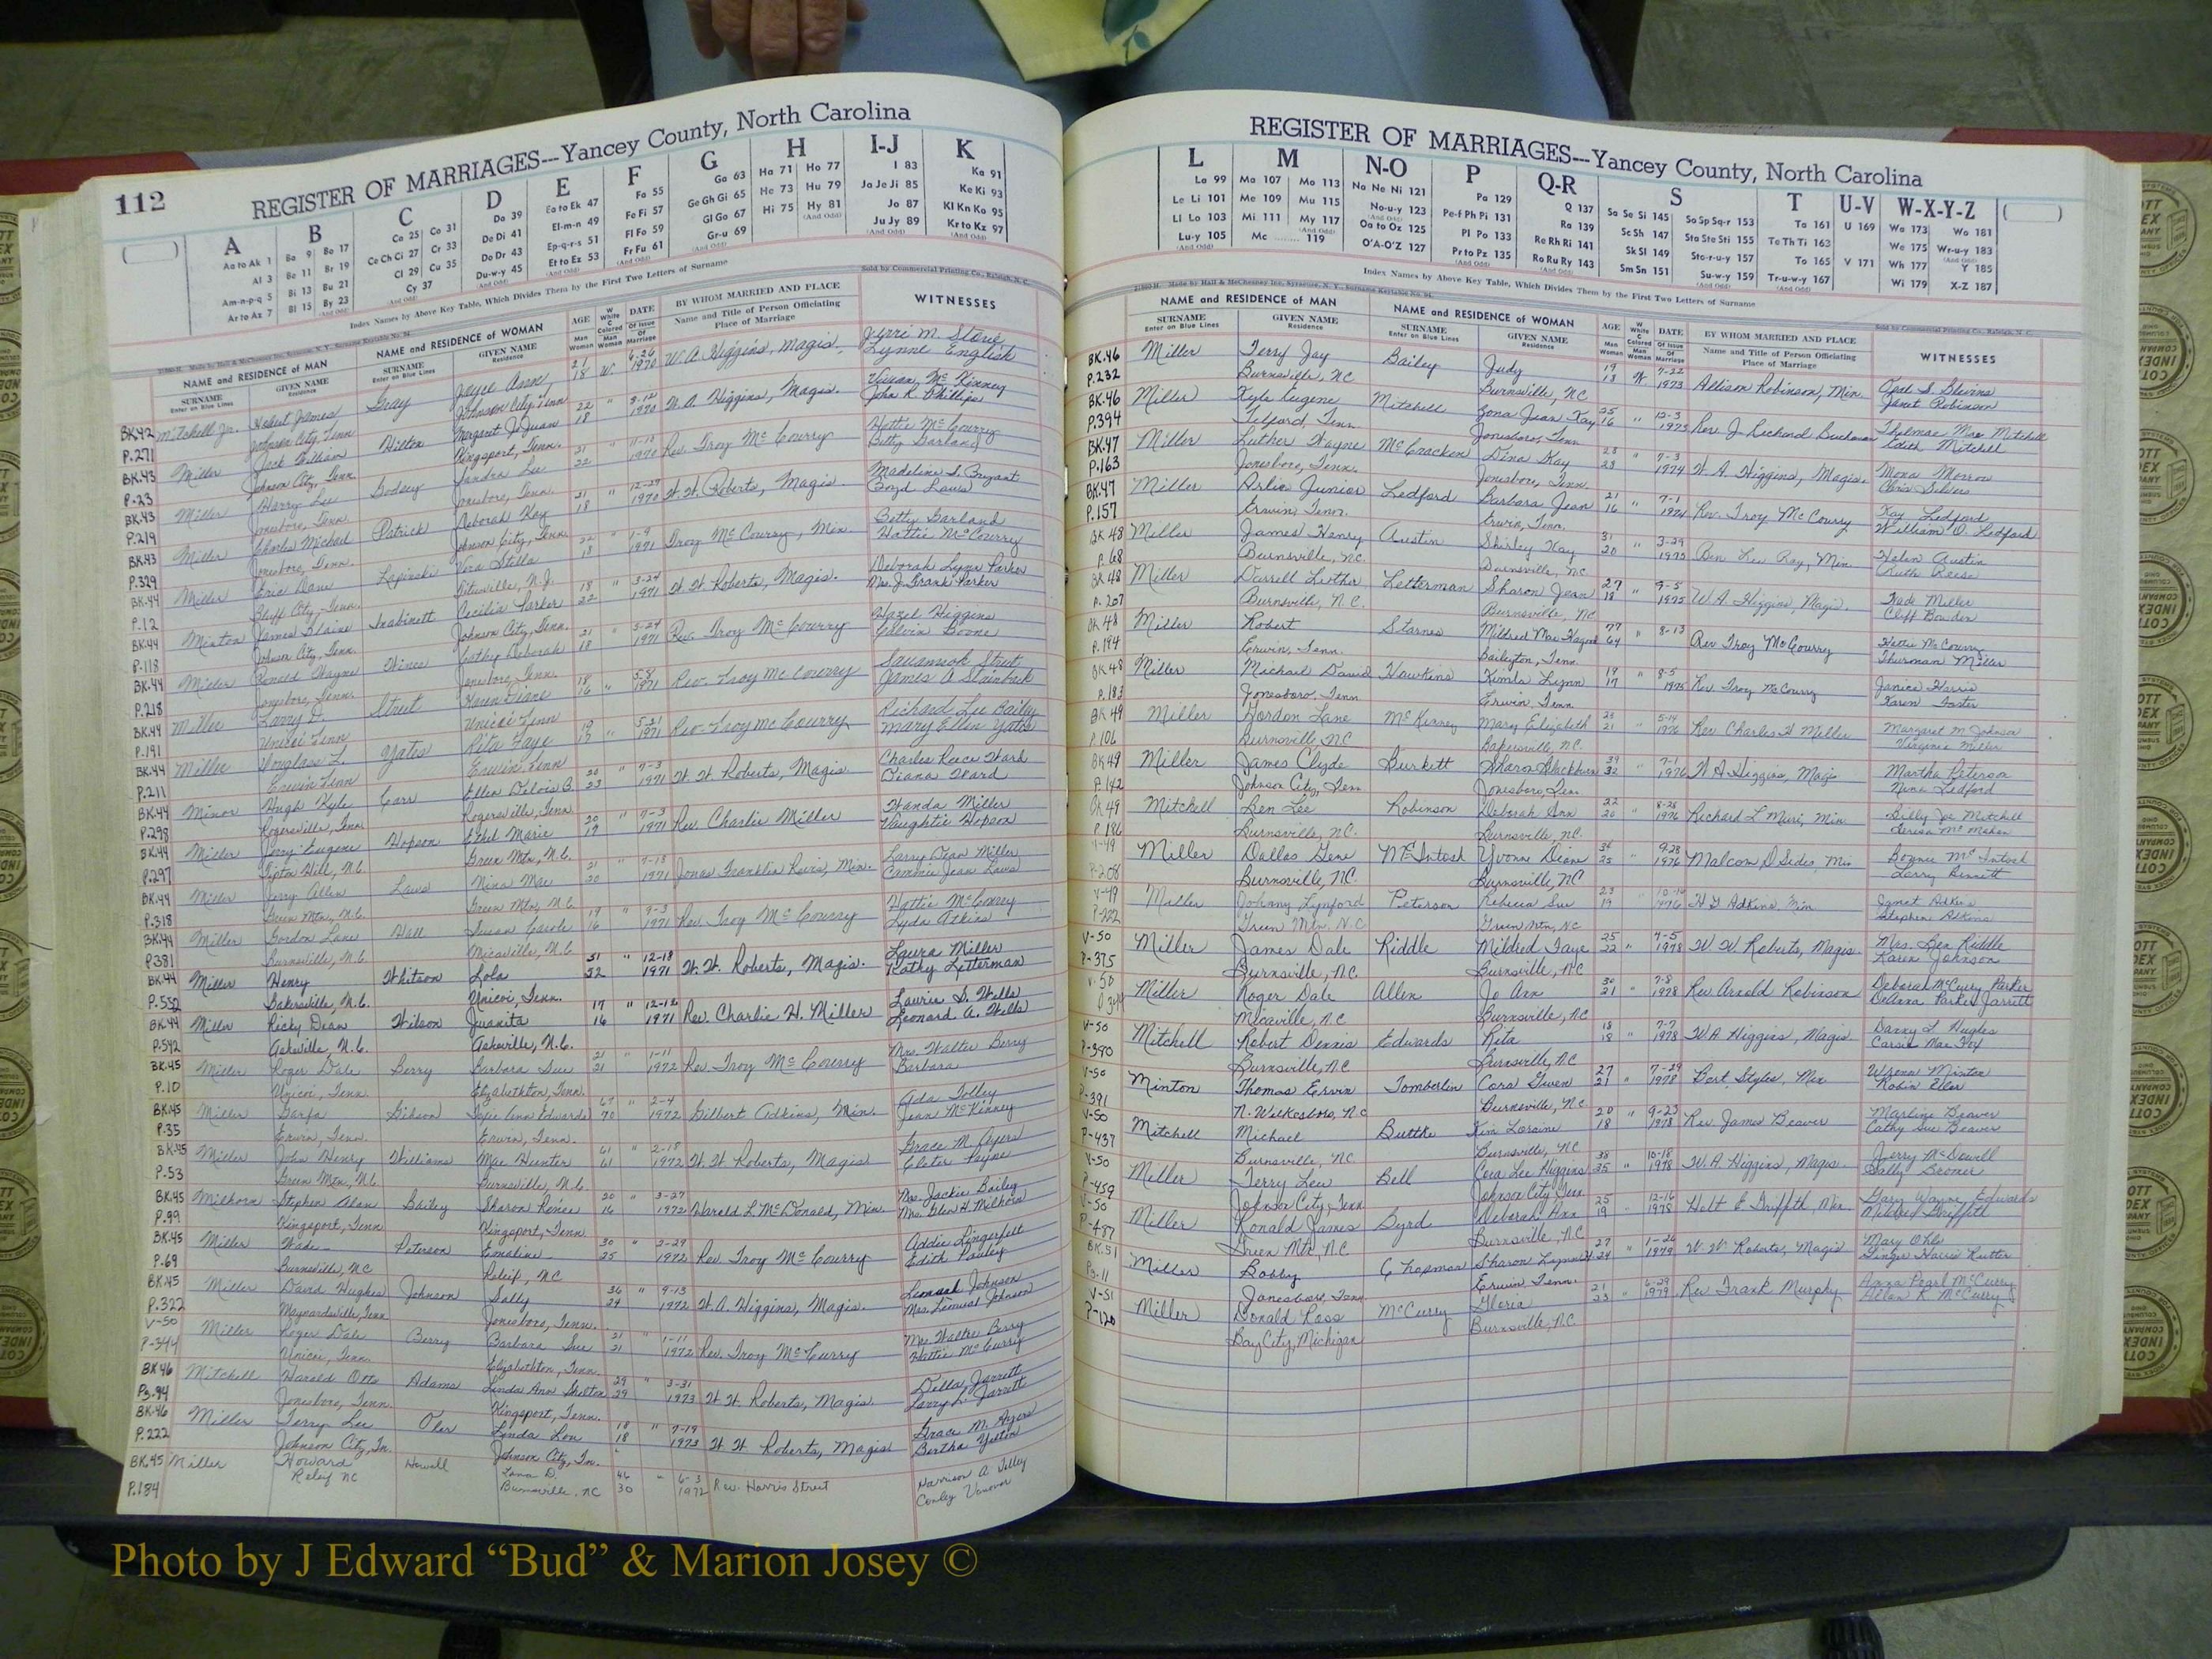 112
REGISTER OF MARRIAGES---Yancey County, North Carolina
A B C D E F G H I-J K
Aa to Ak 1 Ba 9 Bo 17 Ca 25 Co 31 Da 39 Ea to Ek 47 Fa 55 Ga 63 Ha 71 Ho 77 I 83 Ka 91
Al 3 Be 11 Br 19 Ce Ch Ci 27 Cr 33 De Di 41 El-m-n 49 Fe Fi 57 Ge Gh Gi 65 He 73 Hu 79 Ja Je Ji 85 Ke Ki 93
Am-n-p-q 5 Bi 13 Bu 21 Cl 29 Cu 35 Do Dr 43 Ep-q-r-s 51 Fl Fo 59 Gl Go 67 Hi 75 Hy 81 Jo 87 Kl Kn Ko 95
Ar to Az 7 Bl 15 By 23 Cy 37 Du-w-y 45 Et to Ez 53 Fr Fu 61 Gr-u 69 Ju Jy 89 Kr to Kz 97
Index Names by Above Key Table, Which Divides Them by the First Two Letters of Surname
Sold by Commercial Printing Co., Raleigh, N. C.
NAME and RESIDENCE of MAN NAME and RESIDENCE of WOMAN AGE DATE BY WHOM MARRIED AND PLACE WITNESSES
SURNAME GIVEN NAME SURNAME GIVEN NAME Name and Title of Person Officiating
Enter on Blue Lines Residence Enter on Blue Lines Residence Place of Marriage
BK.42 Mitchell Jr. Hobert James Gray Joyce Ann 21 W 6-26 W. A. Higgins, Magis. Lynne English
P.271 Johnson City, Tenn Johnson City, Tenn 18 1970
BK.43 Miller Jack William Hilton Margaret JoJuan 22 " W. A. Higgins, Magis. Vivian McKinney
P.23 Johnson City, Tenn. Kingsport, Tenn. 18 1970 John R. Phillips
BK.43 Miller Harry Lee Godsey Sandra Lee 21 " Rev. Troy McCourry Hattie McCourry
P.219 Jonesboro, Tenn. Jonesboro, Tenn. 22 1970 Betty Garland
BK.43 Miller Charles Michael Patrick Deborah Kay 21 " 12-29 W. W. Roberts, Magis. Madeline S. Bryant
P.329 Jonesboro, Tenn. Johnson City, Tenn. 18 1970 Boyd Laws
BK.44 Miller Eric Dane Lapinski Vera Stella 22 " 1-9 Troy McCourry, Min. Betty Garland
P.12 Bluff City, Tenn. 18 1971 Hattie McCourry
BK.44 Minton James Blaine Inabinett Cecilia Parker 18 " 3-24 W. W. Roberts, Magis. Deborah Lynn Parker
P.118 Johnson City, Tenn. Johnson City, Tenn. 22 1971 Mrs. J. Frank Parker
BK.44 Miller Ronald Wayne Hince Deborah 21 " 5-24 Rev. Troy McCourry Hazel Higgins
P.218 Jonesboro, Tenn. Jonesboro, Tenn. 18 1971 Calvin Boone
BK.44 Miller Larry D. Street Karen Diane 18 " 5-8 Rev. Troy McCourry Street
P.191 Unicoi Tenn Unicoi Tenn 16 1971 James A Stainback
BK.44 Miller Douglass L. Yates Rita Faye 19 " 5-21 Rev. Troy McCourry Richard Lee Bailey
P.211 Erwin Tenn Erwin Tenn 17 1971 Mary Ellen Yates
BK.44 Minor Hugh Kyle Carr Ellen Delois B. 20 " 7-3 W. W. Roberts, Magis. Charles Reece Ward
P.298 Rogersville, Tenn. Rogersville, Tenn. 23 1971 Diana Ward
BK.44 Miller Jerry Eugene Hopson Ethel Marie 20 " 7-3 Rev. Charlie Miller Wanda Miller
P.297 Tipton Hill, N.C. Green Mtn., N.C. 19 1971 Vaughtie Hopson
BK.44 Miller Jerry Allen Laws Nina Mae 21 " 7-18 Jonas Franklin Reeves, Min. Larry Dean Miller
P.318 Green Mtn., N.C. Green Mtn., N.C. 20 1971 Cammie Jean Laws
BK.44 Miller Gordon Lane Hall Susan Carole 19 " 9-3 Rev. Troy McCourry Hattie McCourry
P.381 Burnsville, N.C. Micaville, N.C. 16 1971 Lyda Atkins
BK.44 Miller Henry Whitson Lola 31 " 12-18 W. W. Roberts, Magis. Laura Miller
P.552 Bakersville, N.C. Unicoi, Tenn. 32 1971 Kathy Letterman
BK.44 Miller Ricky Dean Wilson Juanita 17 " 12-12 Rev. Charlie H. Miller Laurie D. Wells
P.542 Asheville, N.C. Asheville, N.C. 16 1971 Leonard A. Wells
BK.45 Miller Roger Dale Berry Barbara Sue 21 " 1-11 Rev. Troy McCourry Mrs. Walter Berry
P.10 Unicoi, Tenn. Elizabethton, Tenn. 21 1972 Barbara
BK.45 Miller Garfa Gibson Edwards 67 " 2-4 Gilbert Adkins, Min. Ada Tolley
P.35 Erwin, Tenn. Erwin, Tenn. 70 1972 Jean McKinney
BK.45 Miller John Henry Williams Mae Hunter 61 " 2-18 W. W. Roberts, Magis Grace M. Ayers
P.53 Green Mtn., N.C. Burnsville, N.C. 61 1972 Elster Payne
BK.45 Milhorn Stephen Alan Bailey Sharon Renee 20 " 3-27 Harold L. McDonald, Min. Mrs. Jackie Bailey
P.99 Kingsport, Tenn Kingsport, Tenn 16 1972 Mrs. Glen H. Milhorn
BK.45 Miller Wade Peterson Emaline 30 " 2-29 Rev. Troy McCourry Addie Lingerfelt
P.69 Burnsville, NC Releif, NC 25 1972 Edith Pauley
BK.45 Miller David Hughes Johnson Sally 36 " 9-13 W. A. Higgins, Magis. Lemuel Johnson
P.322 Maynardsville, Tenn Jonesboro, Tenn. 29 1972 Mrs. Lemuel Johnson
V-50 Miller Roger Dale Berry Barbara Sue 21 " 1-11 Rev. Troy McCurry Mrs. Walter Berry
P-344 Unicoi, Tenn. Elizabethton, Tenn. 21 1972 Hattie McCurry
BK 46 Mitchell Harold Otto Adams Linda Ann Shelton 29 " 3-31 W. W. Roberts, Magis. Della Jarrett
Pg.94 Jonesboro, Tenn. Kingsport, Tenn. 29 1973 Larry L. Jarrett
BK.46 Miller Terry Lee Oler Linda Lou 18 " 7-19 W. W. Roberts, Magis Grace M. Ayers
P.222 Johnson City, Tn. Johnson City, Tn. 18 1973 Bertha Yelton
BK.45 Miller Howard Howell Lana D. 46 " 6-3 Rev. Harris Street Harrison A Tolley
P.184 Releif NC Burnsville, NC 30 1972 Conley
REGISTER OF MARRIAGES---Yancey County, North Carolina
L M N-O P Q-R S T U-V W-X-Y-Z
La 99 Ma 107 Mo 113 Na Ne Ni 121 Pa 129 Q 137 Sa Se Si 145 So Sp Sq-r 153 Ta 161 U 169 Wa 173 Wo 181
Le Li 101 Me 109 Mu 115 No-u-y 123 Pe-f Ph Pi 131 Ra 139 Sc Sh 147 Sta Ste Sti 155 Te Th Ti 163 We 175 Wr-u-y 183
Ll Lo 103 Mi 111 My 117 Oa to Oz 125 Pl Po 133 Re Rh Ri 141 Sk Sl 149 Sto-r-u-y 157 To 165 V 171 Wh 177 Y 185
Lu-y 105 Mc 119 O'A-O'Z 127 Pr to Pz 135 Ro Ru Ry 143 Sm Sn 151 Su-w-y 159 Tr-u-w-y 167 Wi 179 X-Z 187
Index Names by Above Key Table, Which Divides Them by the First Two Letters of Surname
NAME and RESIDENCE of MAN NAME and RESIDENCE of WOMAN AGE DATE BY WHOM MARRIED AND PLACE WITNESSES
SURNAME GIVEN NAME SURNAME GIVEN NAME Name and Title of Person Officiating
Enter on Blue Lines Residence Enter on Blue Lines Residence Place of Marriage
BK.46 Miller Terry Jay Bailey Judy 19 W. 7-22 Allison Robinson, Min. Opal S. Blevins
P.232 Burnsville, NC Burnsville, NC 18 1973 Janet Robinson
BK.46 Miller Kyle Eugene Mitchell Zona Jean Kay 25 " 12-3 Rev. J. Buchanan Thelmae Mae Mitchell
P.394 Telford, Tenn Jonesboro, Tenn 16 1973 Edith Mitchell
BK.47 Miller Luther Wayne McCracken Dina Kay 23 " 7-3 W. A. Higgins, Magis. Mona Morrow
P.163 Jonesboro, Tenn. Jonesboro, Tenn. 23 1974 Chris Silvers
BK.47 Miller Arlie Junior Ledford Barbara Jean 21 " 7-1 Rev. Troy McCourry Kay Ledford
P.157 Erwin, Tenn. Erwin, Tenn. 16 1974 William O. Ledford
BK 48 Miller James Henry Austin Shirley Kay 31 " 3-29 Ben Lee Ray, Min Helen Austin
P.68 Burnsville, NC. Burnsville, NC 20 1975 Ruth Reese
BK 48 Miller Darrell Luther Letterman Sharon Jean 27 " 9-5 W. A. Higgins Magis. Wade Miller
P.207 Burnsville, N.C. Burnsville, NC 18 1975 Cliff
BK 48 Miller Robert Starnes Mildred Mae 77 " 8-13 Rev Troy McCourry Hattie McCourry
P.194 Erwin, Tenn. Baileyton, Tenn. 64 Thurman Miller
BK 48 Miller Michael David Hawkins Kimla Lynn 19 " 8-5 Rev. Troy McCourry Janice Harris
P.183 Jonesboro, Tenn Erwin, Tenn 17 1975 Karen Foster
BK 49 Miller Gordon Lane McKinney Mary Elizabeth 23 " 5-14 Rev Charles H Miller Margaret M. Johnson
P.106 Burnsville, NC Bakersville, NC. 21 1976 Virginia Miller
BK 49 Miller James Clyde Burkett Sharon Blackburn 39 " 7-1 W A Higgins, Magis Martha Peterson
P.142 Johnson City, Tenn Jonesboro Tenn 32 1976 Nina Ledford
BK 49 Mitchell Ben Lee Robinson Deborah Ann 22 " 8-28 Richard L Muri, Min. Billy Joe Mitchell
P.186 Burnsville, NC. Burnsville, NC. 20 1976 Teresa McMahan
V-49 Miller Dallas Gene McIntosh Yvonne Diane 36 " 9-28 Malcom D Sides, Min Bonnie McIntosh
P-208 Burnsville, NC. Burnsville, NC 25 1976 Larry Bennett
V-49 Miller Johnny Lynford Peterson Rebecca Sue 23 " 10-10 H G Adkins, Min Janet Adkins
P-222 Green Mtn. N.C. Green Mtn, NC 19 1976 Stephen Adkins
V-50 Miller James Dale Riddle Mildred Faye 25 " 7-5 W W Roberts, Magis. Mrs. Ben Riddle
P-375 Burnsville, NC. Burnsville, NC 22 1978 Karen Johnson
V-50 Miller Roger Dale Allen Jo Ann 30 " 7-8 Rev Arnold Robinson Deborah McCurry Parker
Micaville, NC Burnsville, NC 21 1978 Parker Jarrett
V-50 Mitchell Robert Dennis Edwards Rita 18 " 7-7 W A Higgins, Magis. Danny L. Hughes
P-380 Burnsville, NC Burnsville, NC 18 1978 Carsie Mae Fox
V-50 Minton Thomas Ervin Tomberlin Cora Gwen 27 " 7-29 Bert Styles, Min Wrena Minton
P-391 N. Wilkesboro, NC Burnsville, NC 21 1978 Robin
V-50 Mitchell Michael Buttke Kim Loraine 20 " 9-23 Rev James Beaver Marline Beaver
P-437 Burnsville, NC Burnsville, NC 18 1978 Cathy Sue Beaver
V-50 Miller Terry Lee Bell Cora Lee Higgins 38 " 10-18 W. A. Higgins, Magis. Jerry McDowell
P-459 Johnson City, Tenn Johnson City, Tenn. 35 1978 Sally
V-50 Miller Ronald James Byrd Deborah Ann 25 " 12-16 Holt E Griffith, Min. Gary Wayne Edwards
P-487 Green Mtn, NC Burnsville, NC 19 1978 Mildred Griffith
BK.51 Miller Bobby Chapman Sharon 27 " 1-26 W. W. Roberts, Magis Mary Ohle
Pg-11 Jonesboro, Tenn Erwin Tenn. 24 1979 Ginger Harris Rutter
V-51 Miller Donald Ross McCurry Gloria 21 " 6-29 Rev Frank Murphy Anna Pearl McCurry
P-120 Bay City, Michigan Burnsville, NC 23 1979 Allan R. McCurry
Photo by J Edward “Bud” & Marion Josey ©